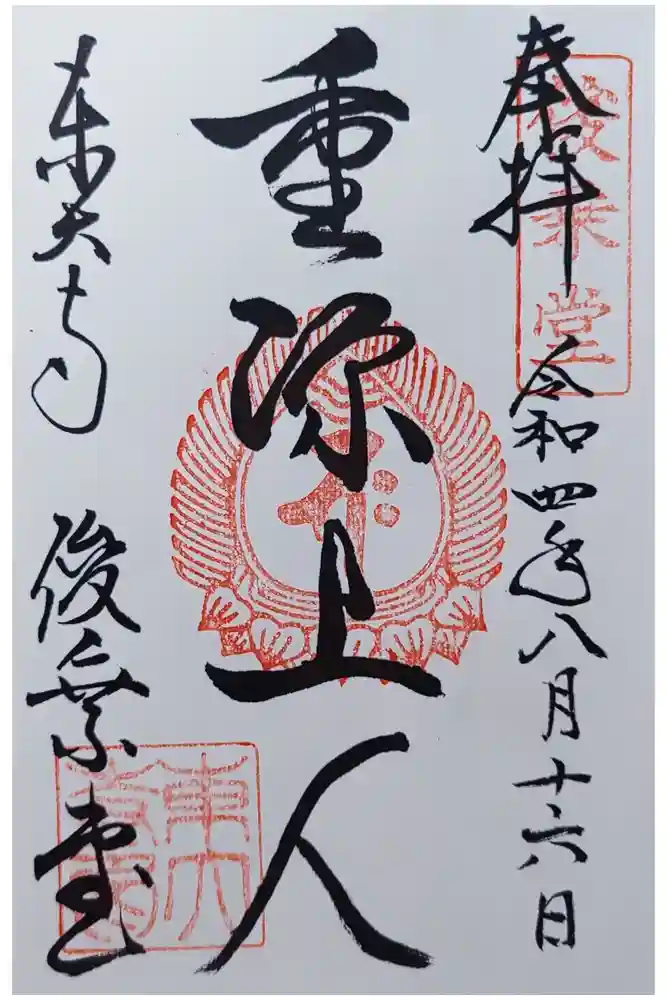 俊乗堂
奉拝 令和四年八月十六日
重源上人
東大寺 俊乗堂